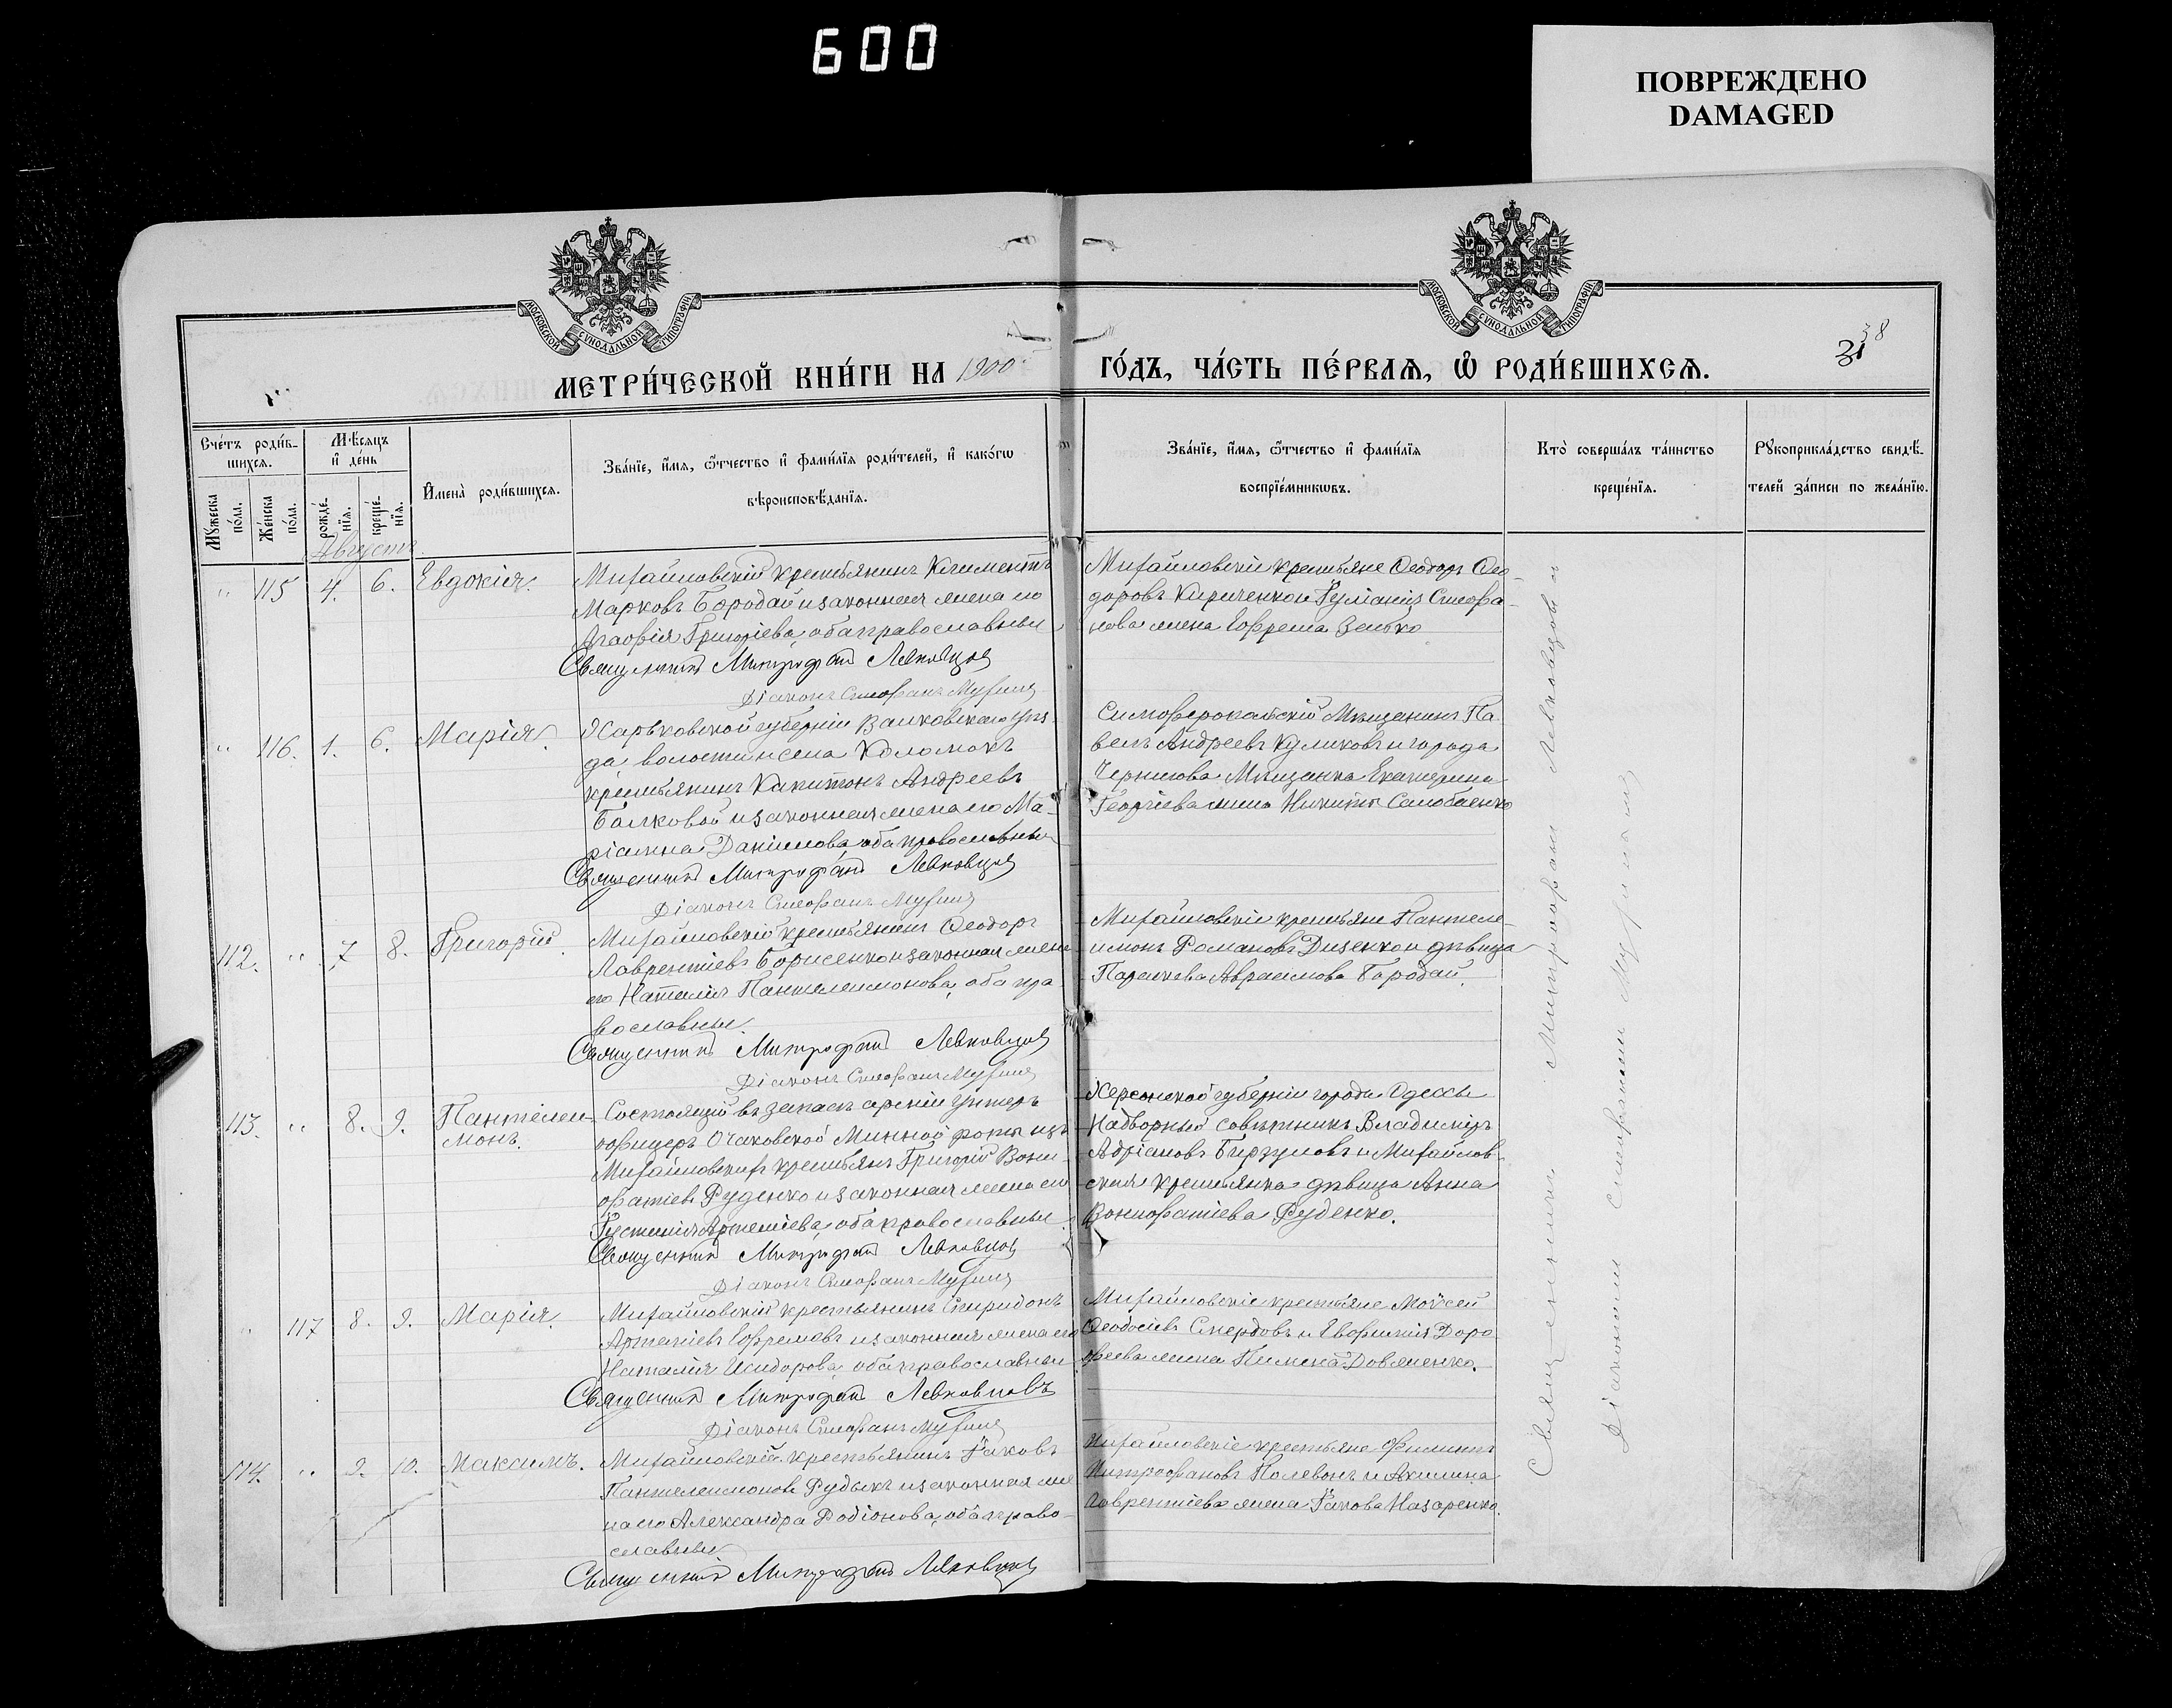 600
ПОВРЕЖДЕНО
DAMAGED
МОСКОВСКОЙ СѴНОДАЛЬНОЙ ТИПОГРАФІИ
МОСКОВСКОЙ СѴНОДАЛЬНОЙ ТИПОГРАФІИ
МЕТРИ́ЧЕСКОЙ КНИ́ГИ НА 1900
ГО́ДЪ, ЧА́СТЬ ПЕ́РВАѦ, Ѽ РОДИ́ВШИХСѦ.
38
Сче́тъ роди́в-
шихся.
Мѣ́сяцъ
и҆ де́нь
И҆мена̀ роди́вшихся.
Зва́нїе, и҆́мя, ѻ҆́тчество и҆ фами́лїя роди́телей, и҆ како́гѡ
вѣроисповѣ́данїя.
Зва́нїе, и҆́мя, ѻ҆́тчество и҆ фами́лїя
воспрїе́мникѡвъ.
Кто̀ соверша́лъ та́инство
креще́нїя.
Рꙋкоприкла́дство свидѣ́-
телей за́писи по жела́нїю.
Мꙋ́жеска
по́ла.
Же́нска
по́ла.
рожде́-
нїя.
креще́-
нїя.
Августъ
" 115 4. 6. Евдокія.
Михайловскій крестьянинъ Климентъ
Марковъ Бородай и законная жена его
Агаѳія Григоріева, оба православные
Священникъ Митрофанъ Левковцов
Діаконъ Стефанъ
Михайловскіе крестьяне Ѳеодоръ Ѳео-
доровъ Кириченко и Іуліанія Стефа-
нова жена Ефрема
" 116. 1. 6. Марія.
Харьковской губерніи Валковскаго уѣз-
да волости и села Коломакъ
крестьянинъ Капитонъ Андреевъ
Балковой и законная жена его Ма-
ріанна Даніилова, оба православные
Священникъ Митрофанъ Левковцов
Діаконъ Стефанъ
Симферопольскій Мѣщанинъ Па
велъ Андреевъ Куликовъ и города
Чернигова Мѣщанка Екатерина
Георгіева жена Никиты Самобаенко
112. " 7 8. Григорій.
Михайловскій крестьянинъ Ѳеодоръ
Лаврентіевъ Борисенко и законная жена
его Наталія Пантелеимонова, оба пра
вославные.
Священникъ Митрофанъ Левковцов
Діаконъ Стефанъ
Михайловскіе крестьяне Пантеле-
имонъ Романовъ Дизенко и дѣвица
Параскева Авраамова Бородай.
113. " 8. 9. Пантелеи-
монъ.
Состоящій въ запасѣ арміи унтеръ
офицеръ Очаковской Минной роты изъ
Михайловскихъ крестьянъ Григорій Вони-
фатіевъ Руденко и законная жена его
Іустинія Артеміева, оба православные.
Священникъ Митрофанъ Левковцов
Діаконъ Стефанъ
Херсонской губерніи города Одессы
Надворный совѣтникъ Владиміръ
Адріановъ и Михайлов-
ская крестьянка дѣвица Анна
Вонифатіева Руденко.
" 117 8. 9. Марія.
Михайловскій крестьянинъ Спиридонъ
Ефремовъ и законная жена его
Наталія Исидорова, оба православные
Священникъ Митрофанъ Левковцовъ
Діаконъ Стефанъ
Михайловскіе крестьяне Моѵсей
Ѳеодосіевъ Смердовъ и Евфимія Доро
ѳеева жена Пимена Довженко.
114. " 9. 10. Максимъ.
Михайловскій крестьянинъ Іаковъ
Пантелеимоновъ Рудыкъ и законная же
на его Александра Родіонова, оба право-
славные
Священникъ Митрофанъ Левковцов
Михайловскіе крестьяне Филиппъ
Митрофановъ и Акилина
Лаврентіева жена Іакова Назаренко.
Священникъ Митрофанъ Левковцовъ и
Діаконъ Стефанъ